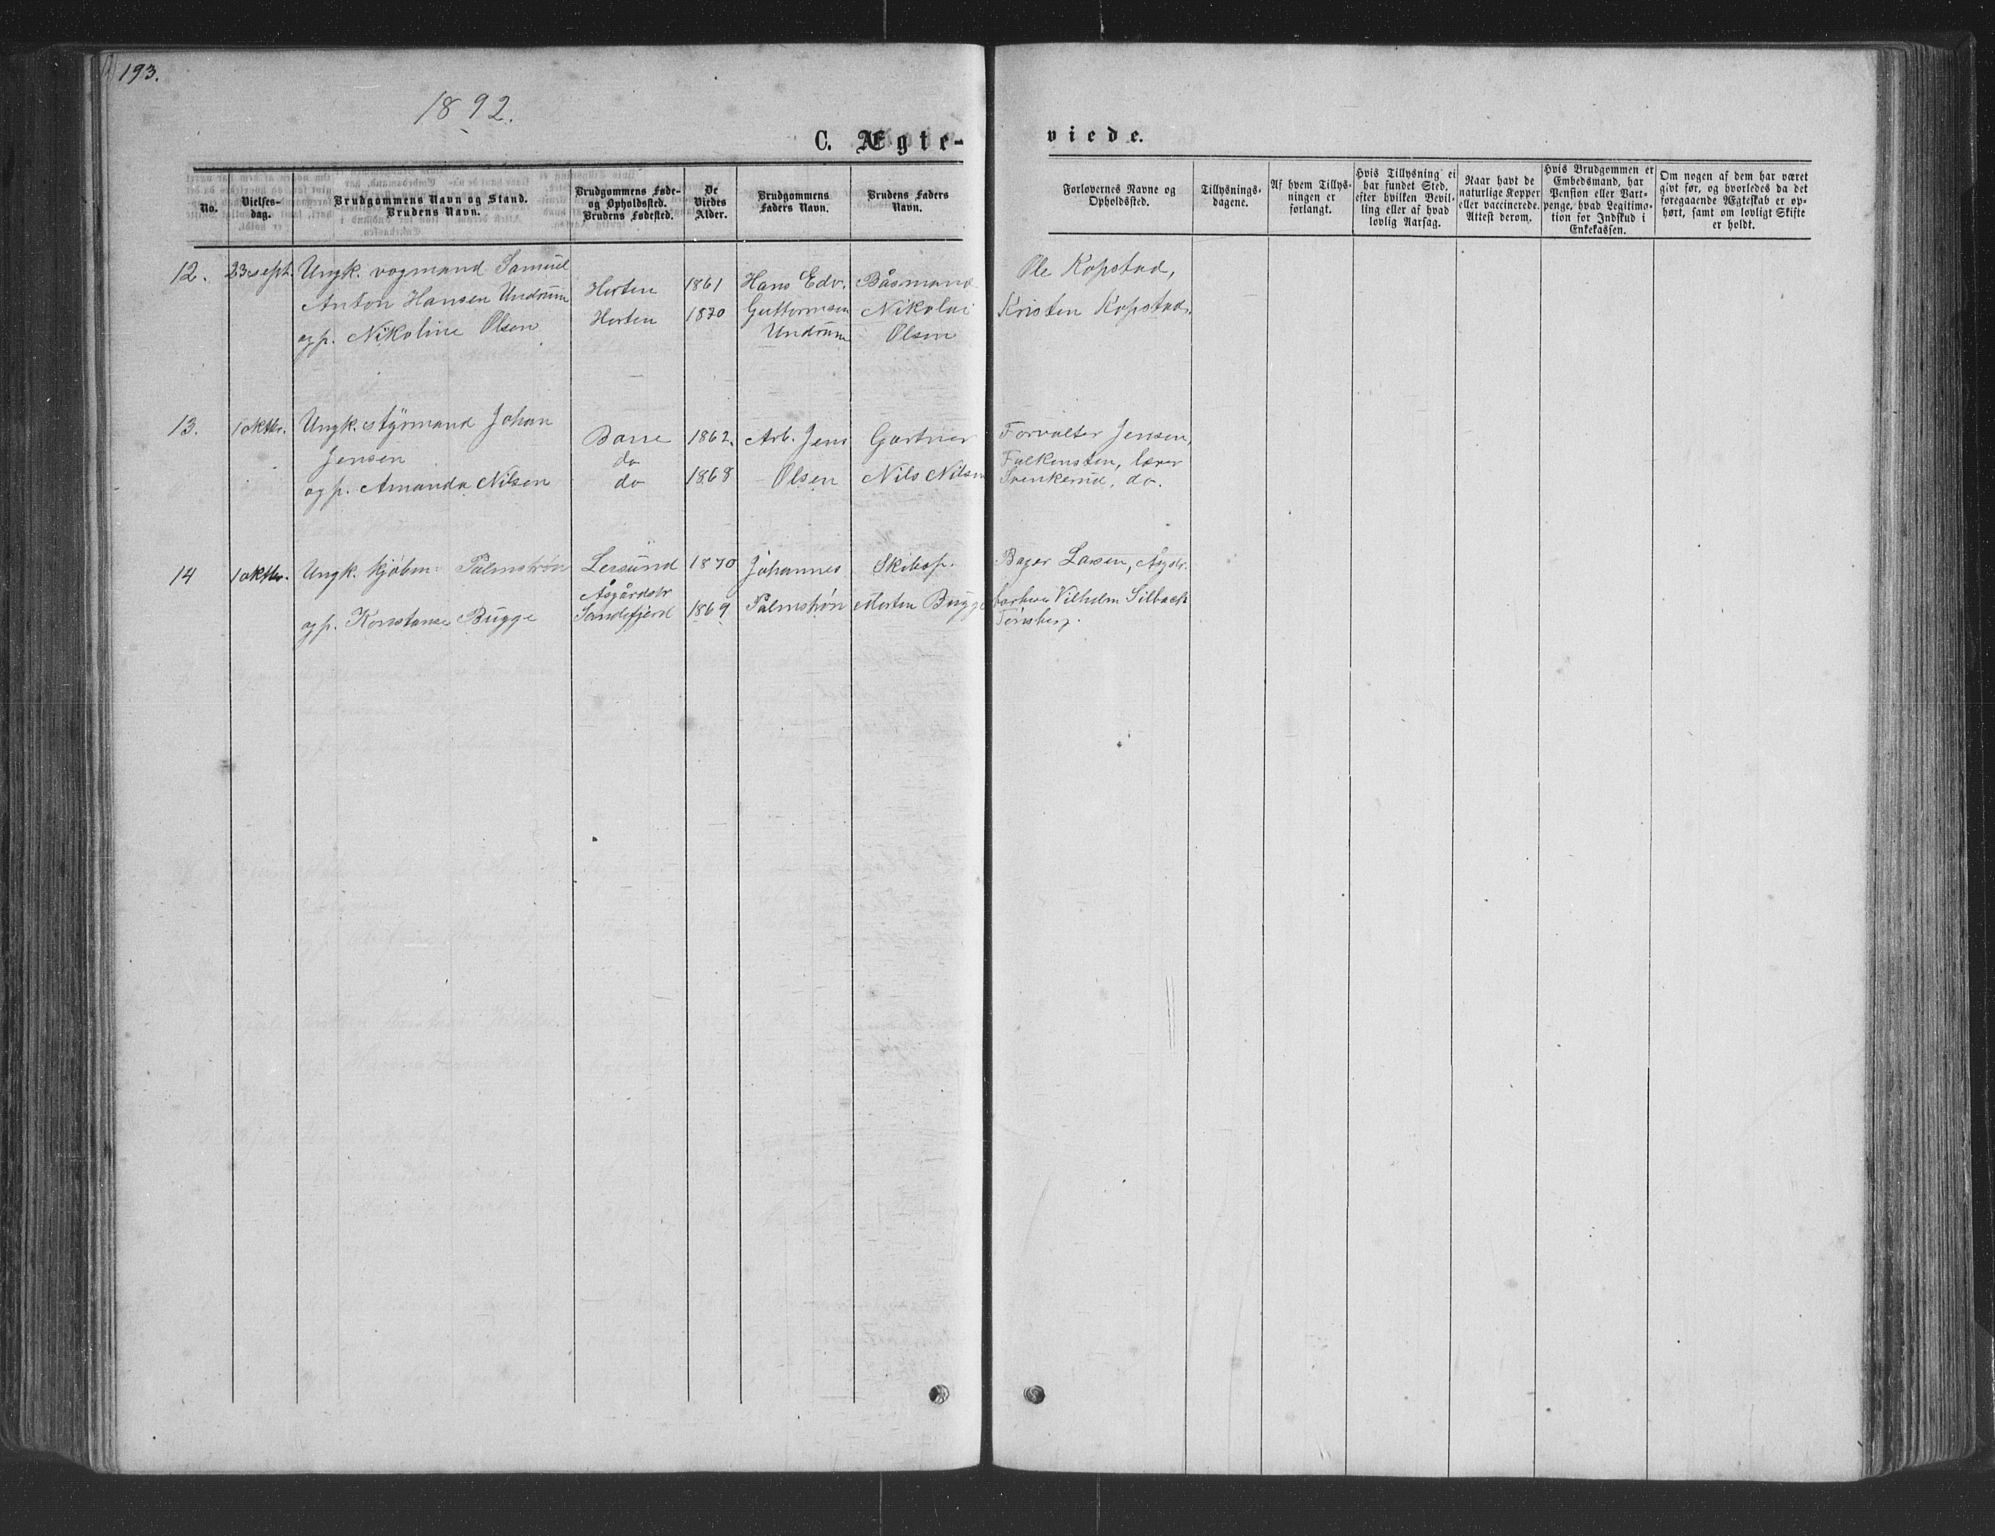 193.
1892.
C. Ægte-
viede.
No.
Vielses-
dag.
Brudgommens Navn og Stand.
Brudens Navn.
Brudgommens Føde-
og Opholdssted.
Brudens Fødested.
De
Viedes
Alder.
Brudgommens
Faders Navn.
Brudens Faders
Navn.
Forlovernes Navne og
Opholdssted.
Tillysnings-
dagene.
Af hvem Tillys-
ningen er
forlangt.
Hvis Tillysning ei
har fundet Sted,
efter hvilken Bevil-
ling eller af hvad
lovlig Aarsag.
Naar havt de
naturlige Kopper
eller vaccinerede.
Attest derom.
Hvis Brudgommen er
Embedsmand, har
Pension eller Vart-
penge, hvad Legitima-
tion for Indskud i
Enkekassen.
Om nogen af dem har været
givt før, og hvorledes da det
foregaaende Ægteskab er op-
hørt, samt om lovligt Skifte
er holdt.
12.
23 sept.
Ungk. vogmand Samuel
Anton Hansen Undrum
og p. Nikoline Olsen
Horten
Horten
1861
1870
Hans Edv.
Guttormsen
Undrum
Båsmand
Nikolai
Olsen
Ole Kopstad,
Kristen Kopstad.
13.
1 oktbr.
Ungk. styrmand Johan
Jensen
og p. Amanda Nilsen
Borre
do
do
1862.
1868
Arb. Jens
Olsen
Gartner
Nils Nilsen
Forvalter Jensen,
Falkensten, lærer
Svenkerud, do.
14
1 oktbr.
Ungk. kjøbm. Palmstrøn
og p. Konstanse Bugge
Åsgårdstr
Sandefjord
1870
1869
Johannes
Palmstrøn
Skibsp.
Morten Bugge
Bager Larsen, Asgdr.
Vilhelm Silbach
Tønsberg.